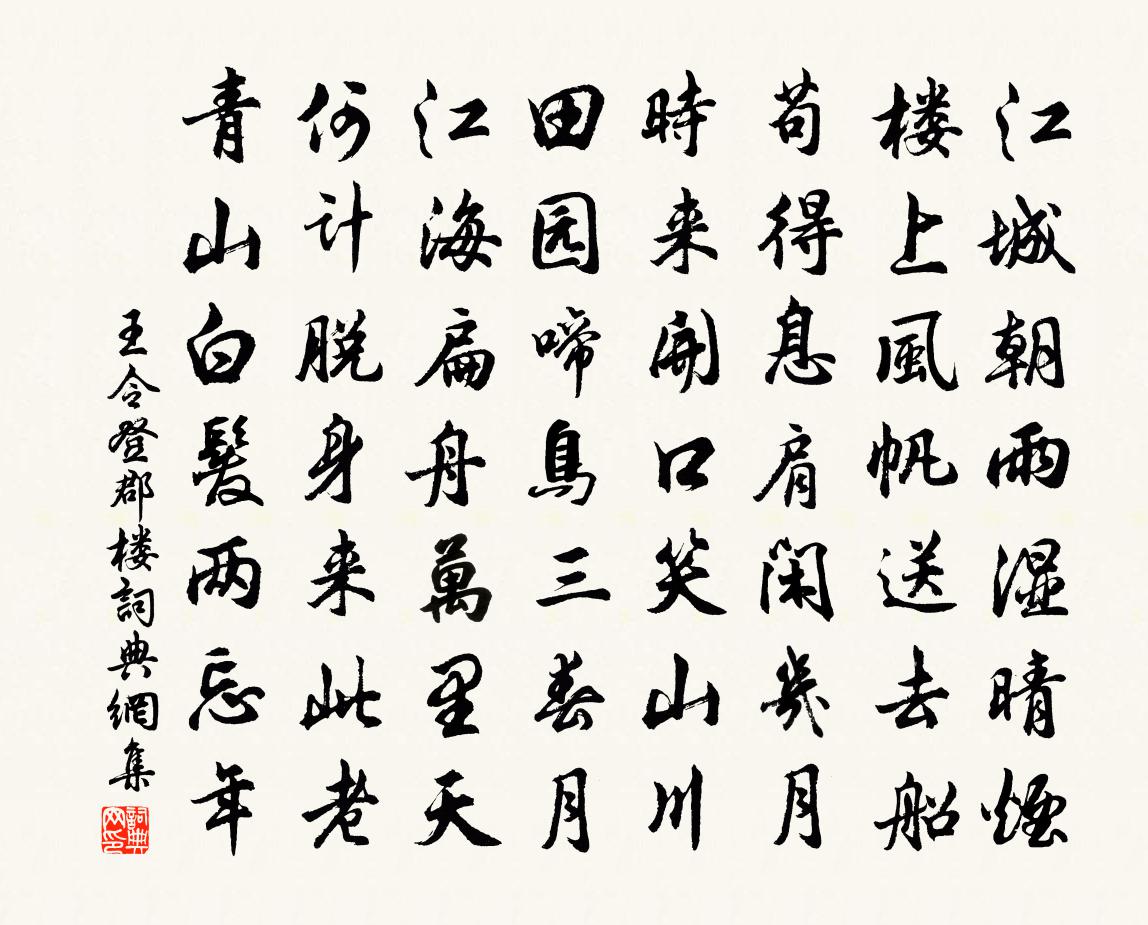 江城朝雨湿晴煙
楼上風帆送去船
苟得息肩閑幾月
時来開口笑山川
田园啼鳥三春月
江海扁舟萬里天
何计脱身来此老
青山白髮两忘年
王令登郡楼詞典網集
詞典网印